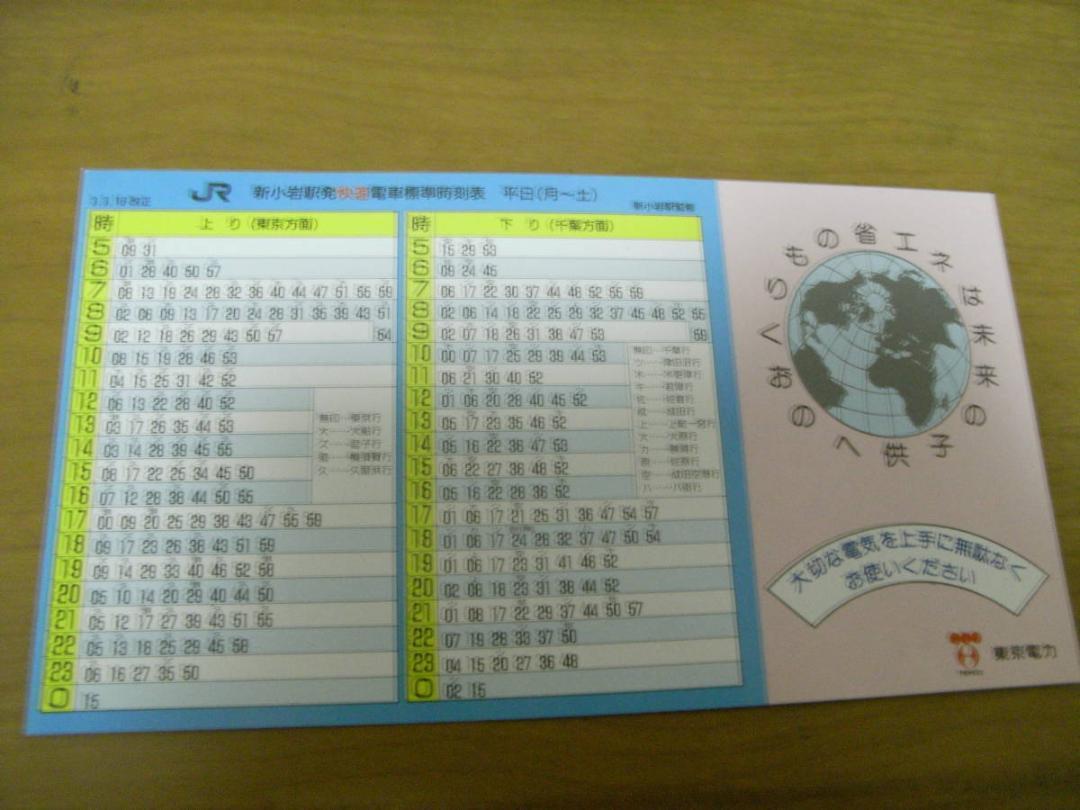 3.3.16改正
JR 新小岩駅発快速電車標準時刻表 平日(月〜土)
時 上り(東京方面)
5 09 31
6 01 28 40 50 57
7 08 13 19 24 28 32 36 40 44 47 51 55 59
8 02 06 09 13 17 20 24 28 31 35 39 43 51
9 02 12 18 26 29 43 50 57 54
10 08 15 19 28 46 53
11 04 15 25 31 42 52
12 06 13 22 28 40 52
13 03 17 26 35 44 53
14 03 14 28 39 45 55
15 08 17 22 25 34 45 50
16 07 12 28 38 44 50 55
17 00 09 20 25 29 38 43 47 55 59
18 09 17 23 26 36 43 51 59
19 09 14 29 33 40 46 52 58
20 05 10 14 20 29 40 44 50
21 05 12 17 27 39 43 51 55
22 05 13 18 25 29 45 58
23 06 16 27 35 50
0 15
無印…東京行
時 下り(千葉方面)
5 15 29 53
6 09 24 45
7 06 17 22 30 37 44 48 52 55 59
8 02 06 14 18 22 25 29 32 37 45 48 52 55
9 02 07 18 26 31 38 47 53 59
10 00 07 17 25 29 39 44 53
11 06 21 30 40 52
12 01 06 20 28 40 45 52
13 05 17 23 35 46 52
14 05 16 22 36 47 53
15 06 22 27 36 48 52
16 05 16 22 28 36 52
17 01 06 17 21 25 31 36 47 54 57
18 01 06 17 24 28 32 37 47 50 54
19 01 06 17 23 31 41 48 52
20 02 08 18 23 31 36 44 52
21 01 08 17 22 29 37 44 50 57
22 07 19 28 33 37 50
23 04 15 20 27 36 48
0 02 15
無印…千葉行
ツ……津田沼行
木……木更津行
キ……君津行
佐……佐倉行
成……成田行
空……成田空港行
あくらもの省エネは未来の子供へのお
大切な電気を上手に無駄なく
お使いください
東京電力